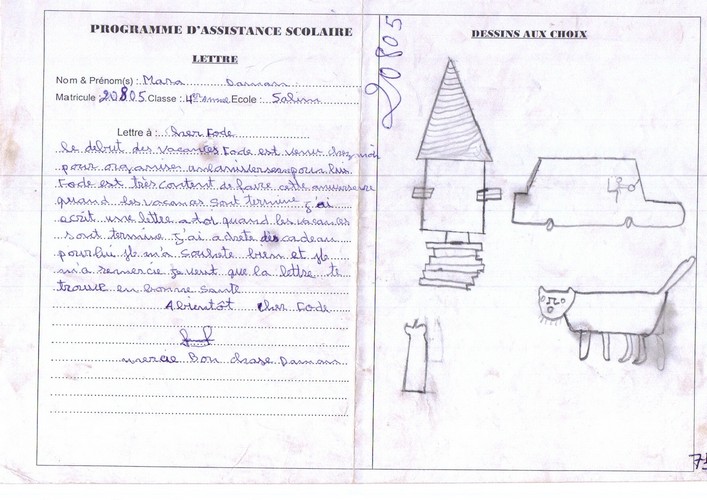 PROGRAMME D'ASSISTANCE SCOLAIRE
LETTRE
Nom & Prénom(s) : Mara Damam
Matricule : 20805 Classe : 4ème anne Ecole : Salim
Lettre à : Cher Fode
le debut des vacances Fode est venu chez moi
pour organiser anhaniversere pour lui
Fode est très content de faire cette anniversere
quand les vacanas sont terminé j'ai
ecrit une lettre a toi quand les vacanes
sont terminé j'ai achete des cadeau
pour lui il m'a souhete bien et il
m'a remercie je veut que la lettre te
trouve en bonne sante
Abientôt cher Fode
mercie Bon chase Damam
20805
DESSINS AUX CHOIX